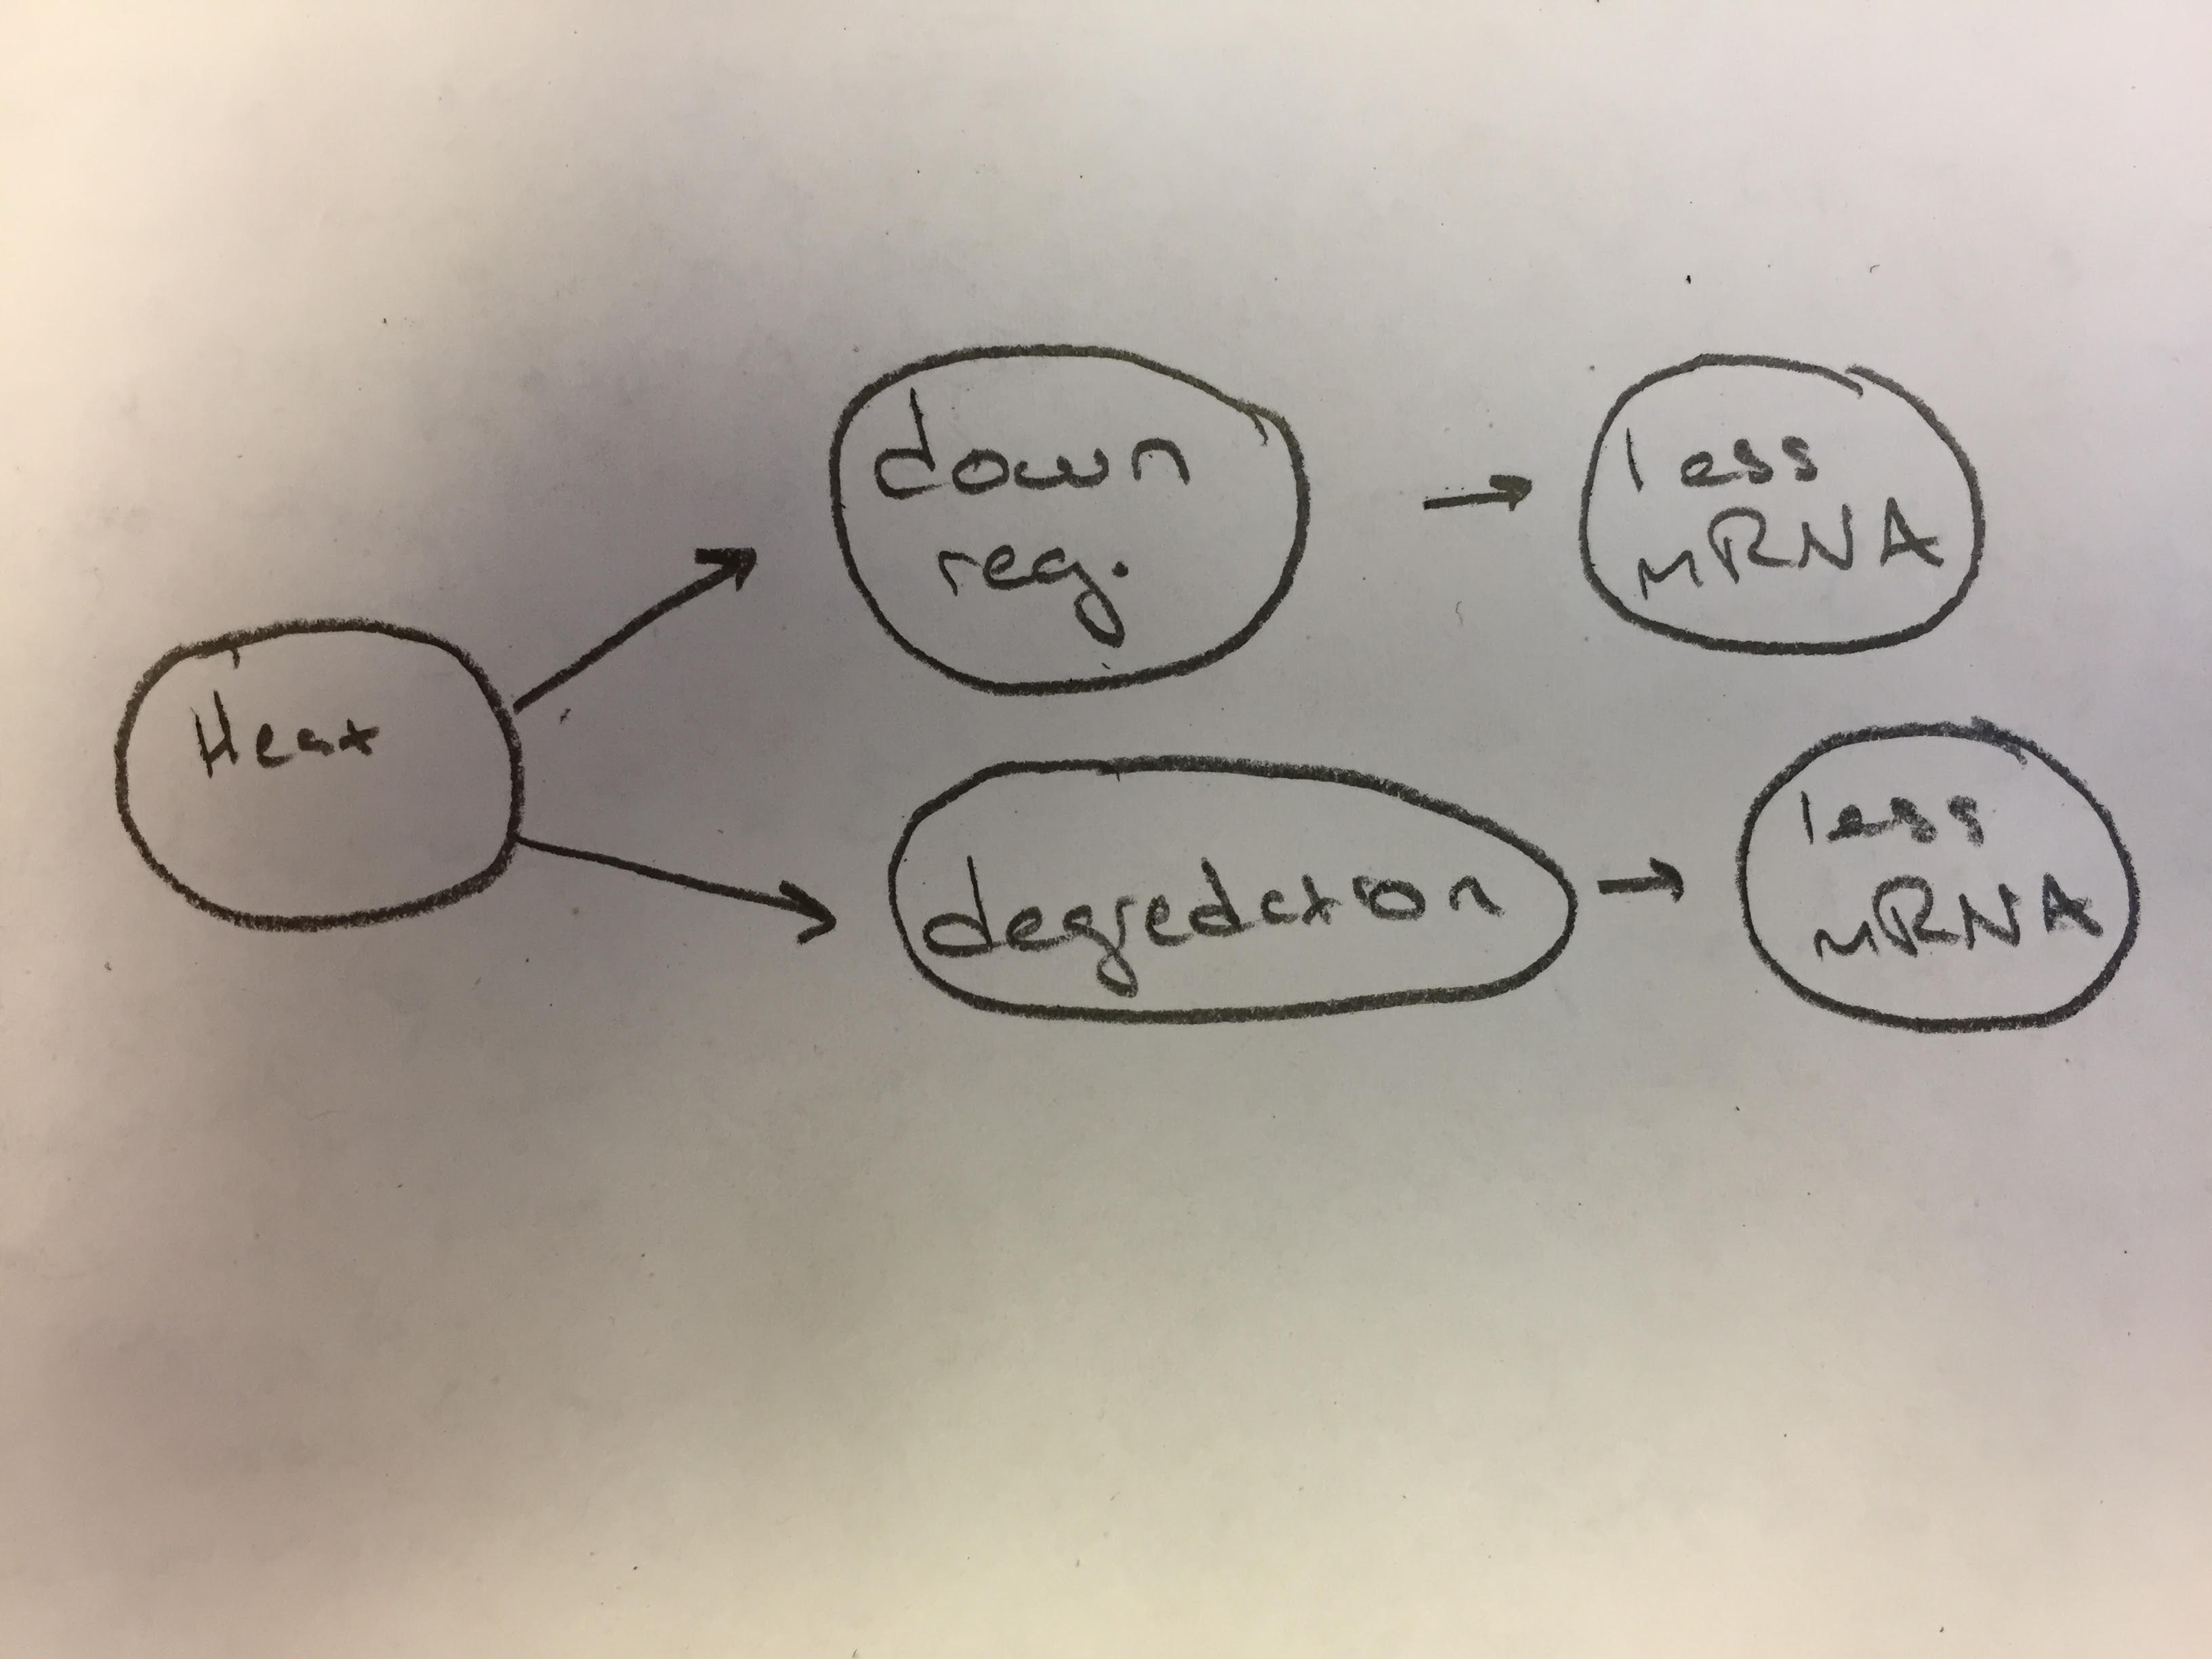 Heat
down
reg.
less
mRNA
degredation
less
mRNA